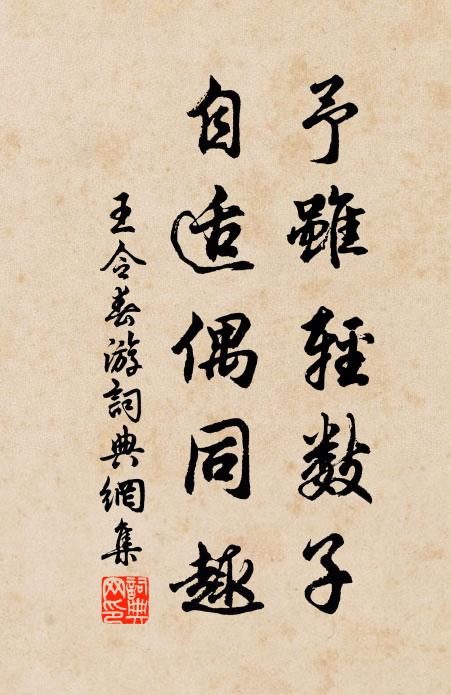 予雖輕数子
自适偶同趣
王令春游詞典網集
詞典
网印